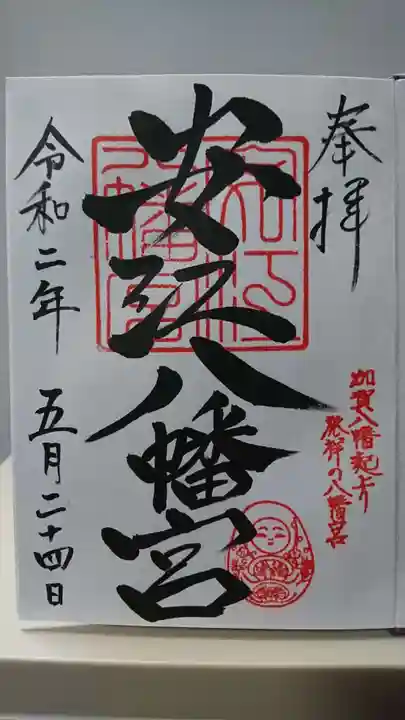 奉拝
加賀八幡起上り
発祥の八幡宮
安江八幡宮
安江八幡宮
令和二年 五月二十四日